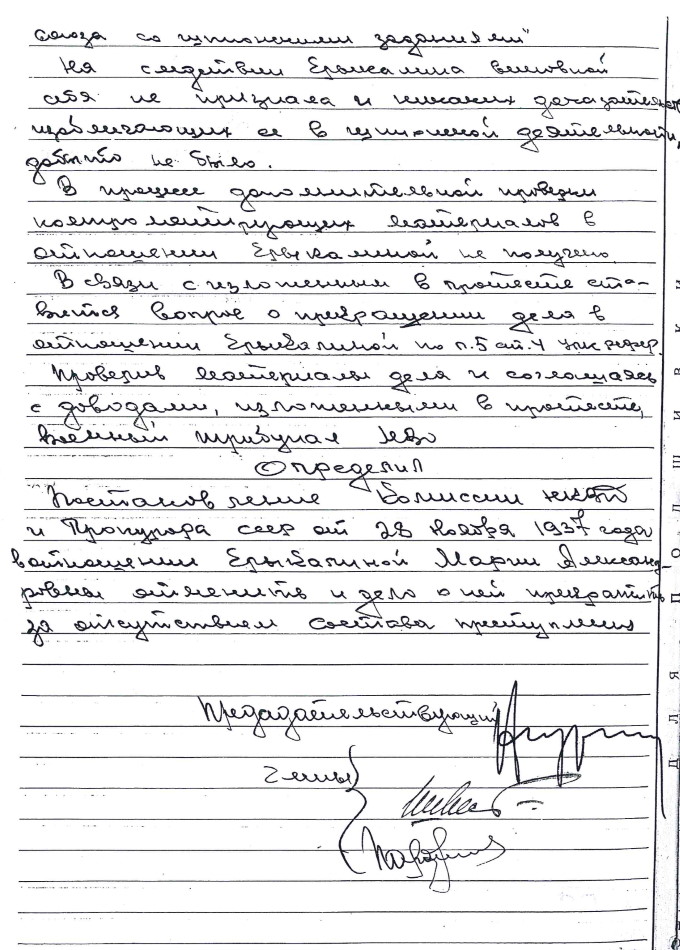 союза со шпионскими заданиями"
На следствии Ерыкалина виновной
себя не признала и никаких доказательств
изобличающих ее в шпионской деятельности,
добыто не было.
В процессе дополнительной проверки
компрометирующих материалов в
отношении Ерыкалиной не получено.
В связи с изложенным в протесте ста-
вится вопрос о прекращении дела в
отношении Ерыкалиной по п.5 ст.4 УПК РСФСР.
Проверив материалы дела и соглашаясь
с доводами, изложенными в протесте,
Военный трибунал
Определил
Постановление Комиссии НКВД
и Прокурора СССР от 28 ноября 1937 года
в отношении Ерыкалиной Марии Александ
ровны отменить и дело о ней прекратить
за отсутствием состава преступления
Председательствующий
Члены
Для подшивки